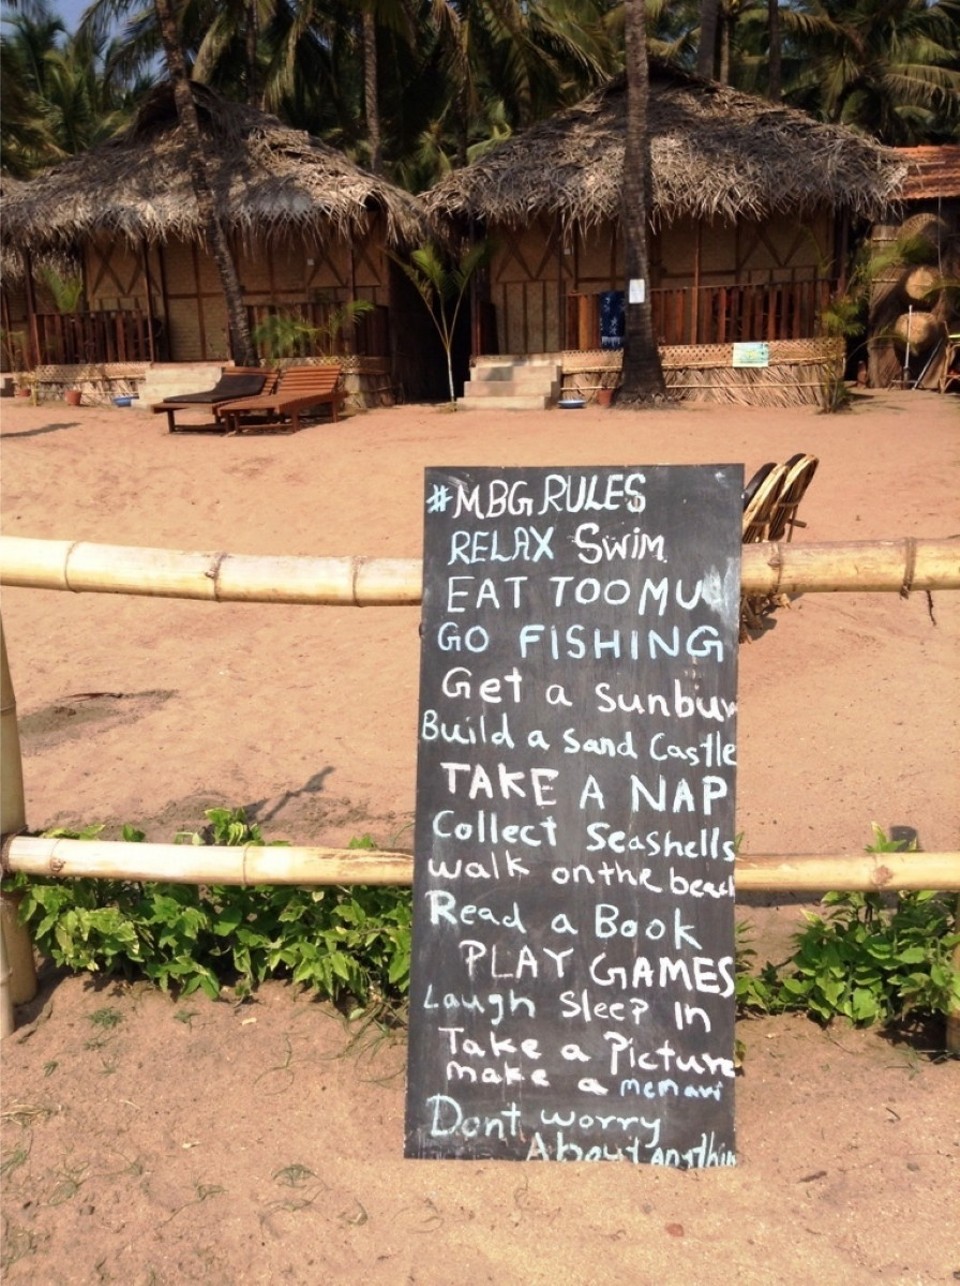 #MBG RULES
RELAX SWIM
EAT TOO MU
GO FISHING
Get a sunbur
Build a sand Castle
TAKE A NAP
Collect Seashells
walk on the beach
Read a Book
PLAY GAMES
Laugh Sleep In
Take a Picture
make a memari
Dont worry
About anythin